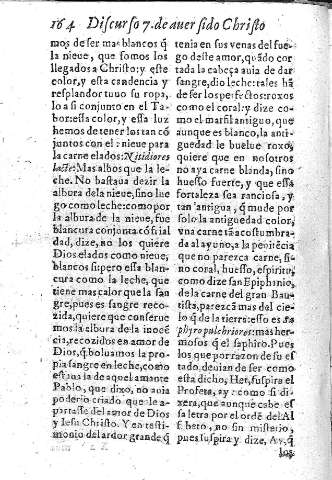 164 Discurso 7. de auer sido Christo
mos de ser mas blancos q̃
la nieue, que somos los
llegados a Christo: y este
color, y esta candencia y
resplandor tuuo su ropa,
lo a si conjunto en el Ta-
bor: essa color, y essa luz
hemos de tener los tan cõ
juntos con el: nieue para
la carne elados: Nitidiores
lacte: Mas albos que la le-
che. No bastaua dezir la
albura de la nieue, sino lue
go como leche: como por
la albura de la nieue, fue
blancura conjunta cõ friál
dad, dize, no los quiere
Dios elados como nieue,
blancos si: pero essa blan-
cura como la leche, que
tiene mas calor que la san
gre, pues es sangre reco-
zida, quiere que conserue
mos la albura de la inocẽ
cia, recozidos en amor de
Dios, q̃ boluamos la pro-
pia sangre en leche, como
estaua la de aquel amante
Pablo, que dixo, no auia
poderio criado que le a-
partasse del amor de Dios
y Iesu Christo. Y en testi-
monio del ardor grande q̃
tenia en sus venas del fue-
go deste amor, quãdo cor
tada la cabeça auia de dar
sangre, dio leche: tales hã
de ser los perfectos roxos
como el coral: y dize co-
mo el marfil antiguo, que
aunque es blanco, la anti-
guedad le buelue roxo:
quiere que en nosotros
no aya carne blanda, sino
huesso fuerte, y que essa
fortaleza sea ranciosa, y
tan antigua, q̃ mude por
solo la antiguedad color,
vna carne tã acostumbra-
da al ayuno, a la penitẽcia
que no parezca carne, si-
no coral, huesso, espiritu,
como dize san Epiphanio,
de la carne del gran Bau-
tista, parezcã mas del cie-
lo q̃ de la tierra: esso es Sa
phyro pulchriores: mas her-
mosos q̃ el saphiro. Pues
los que por razon de su es
tado, deuian de ser como
esta dicho, Het, suspira el
Profeta, ay: como si di-
xera, que aunque cabe es
sa letra por el ordẽ del Al
fabeto, no sin misterio,
pues suspira y dize, Ay, q̃